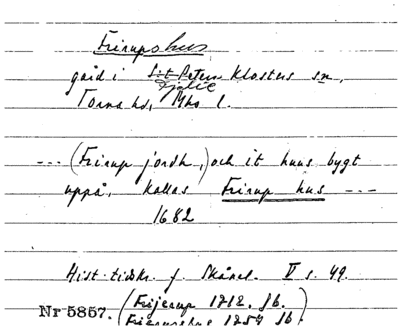 Frirups hus
gård i S:t Peters Klosters sn,
Fjälie
Torna hd, Mho l.
--- (Frirup jordh,) och it huus bygt
uppå, kallas Frirup hus ---
1682
Hist. tidskr. f. Skånel. V s. 49.
Nr 5857. (Frijerup 1712. Jb.
1757 Jb.)